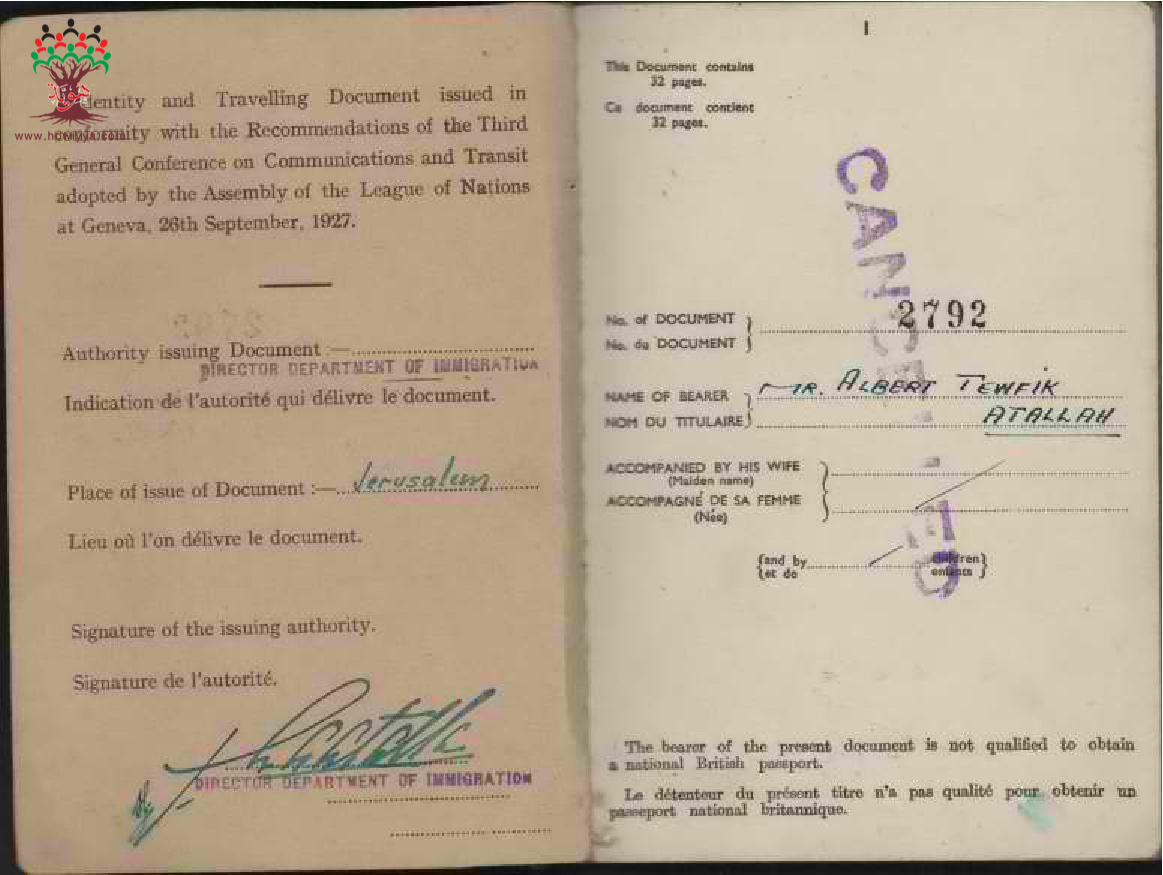 Identity and Travelling Document issued in
conformity with the Recommendations of the Third
General Conference on Communications and Transit
adopted by the Assembly of the League of Nations
at Geneva, 26th September, 1927.
Authority issuing Document :—
DIRECTOR DEPARTMENT OF IMMIGRATION
Indication de l'autorité qui délivre le document.
Place of issue of Document :— Jerusalem
Lieu où l'on délivre le document.
Signature of the issuing authority.
Signature de l'autorité.
DIRECTOR DEPARTMENT OF IMMIGRATION
1
This Document contains
32 pages.
Ce document contient
32 pages.
CANCELLED
No. of DOCUMENT 2792
No. du DOCUMENT
NAME OF BEARER MR. ALBERT TEWFIK
NOM DU TITULAIRE ATALLAH
ACCOMPANIED BY HIS WIFE
(Maiden name)
ACCOMPAGNÉ DE SA FEMME
(Née)
(and by children)
(et de enfants)
The bearer of the present document is not qualified to obtain
a national British passport.
Le détenteur du présent titre n'a pas qualité pour obtenir un
passeport national britannique.